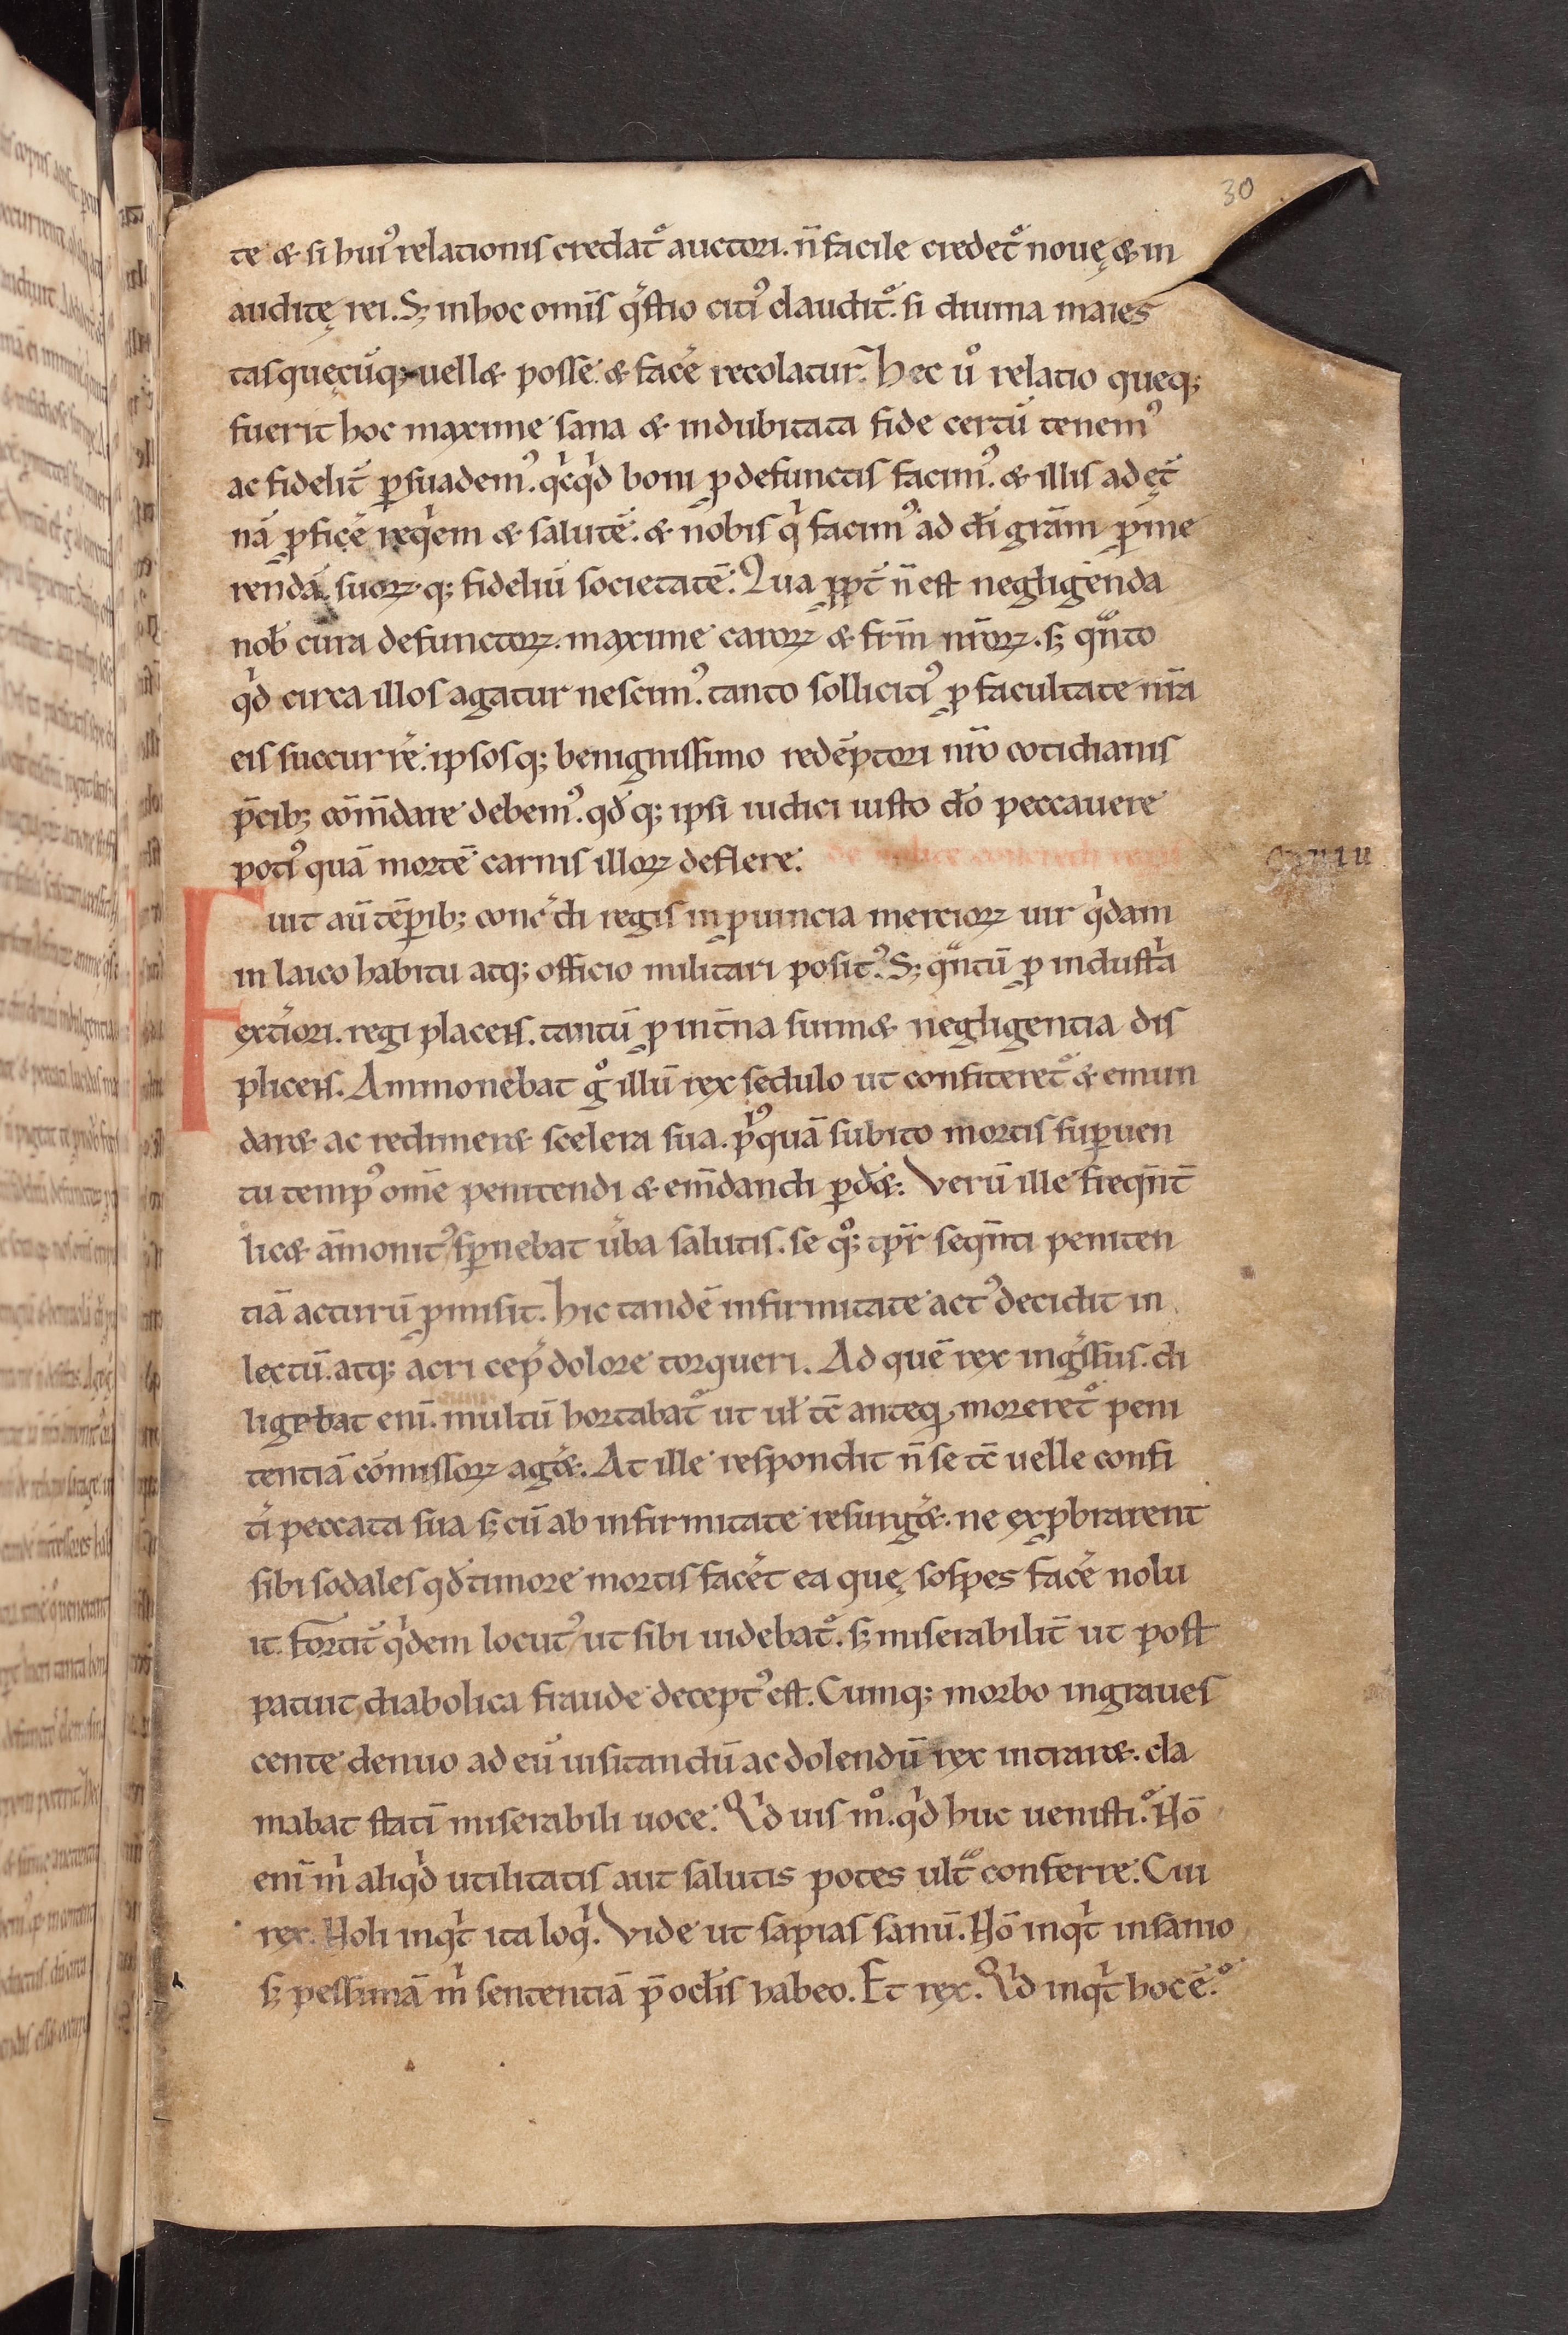 30
te & si hui᾽ relationis credat᷑ auctori. n̄ facile credet᷑ nouę & in
auditę rei. S; in hoc omīs q̄stio citi᾽ claudit᷑. si diuina maies
tas quęcūq; uell& posse. & facẽ recolatur. Hec ů relatio queq;
fuerit hoc maxime sana & indubitata fide certū tenem᾽
ac fidelit̄ ꝑsuadem᾽. qͥcqͥd boni ꝓ defunctis facim᾽. & illis ad ęt̄
nā ꝓficẽ reqͥem & salutē. & nobis qͥ facim᾽ ad dī grām ꝓme
rendā. suoꝝ q; fideliū societatē. Qua ꝓpt̄ n̄ est negligenda
nob̄ cura defunctoꝝ. maxime caroꝝ & frm̄ nr̄oꝝ. s; qᵃnto
qͥd circa illos agatur nescim᾽. tanto solliciti᾽ ꝓ facultate nr̄a
eis succurrẽ. ipsosq; benignissimo redēptori nr̄o cotidianis
p̄cib; cōm̄dare debem᾽. qd̄ q; ipsi iudici iusto dō peccauere
poti᾽ quā mortē carnis illoꝝ deflere. de milite conredi regis
Fuit aū tēꝑib; conr̄di regis in ꝓuincia mercioꝝ uir qͥdam
in laico habitu atq; officio militari posit᾽. S; qᵃntū ꝓ industͥa
ext̄iori. regi placens. tantū ꝓ int̄na suim& negligentia dis
plicens. Ammonebat gͦ illū rex sedulo ut confiteret᷑ & emun
dar& ac redimer& scelera sua. pͥ᾽quā subito mortis suꝑuen
tu temp᾽ om̄e penitendi & em̄dandi ꝑd&. Verū ille freqn̄t̄
lic& āmonit᾽ sꝑnebat ūba salutis. se qͦ; tp̄r seqn̄ti peniten
tiā acturū ꝓmisit. Hic tandē infirmitate act᾽ decidit in
lectū. atq; acri cep̄ dolore torqueri. Ad quē rex ingͤssus. di
ligebat enī. multū hortabat᷑ ut ul̄ tc̄ anteqͣ moreret᷑ peni
tentiā cōmissoꝝ ag̃&. At ille respondit n̄ se tc̄ uelle confi
t̄i peccata sua s; cū ab infirmitate resurg̃&. ne exꝓbrarent
sibi sodales qd̄ timore mortis facẽt ea quę sospes facẽ nolu
it. Fortit̄ qͥdem locut᾽ ut sibi uidebat᷑. s; miserabilit̄ ut post
patuit diabolica fraude decept᾽ est. Cumq; morbo ingraues
cente denuo ad eū uisitandū ac dolendū rex intrar&. cla
mabat statī miserabili uoce. Qͥd uis mͦ. qͥd huc uenisti. Nō
enī mͥ aliqͥd utilitatis aut salutis potes ultᵃ conferre. Cui
rex. Noli inqͥt ita loqͥ. Vide ut sapias sanū. Nō inqͥt insanio
s; pessimā mͥ sententiā p̄ oclis habeo. Et rex. Qͥd inqͥt hoc ē.